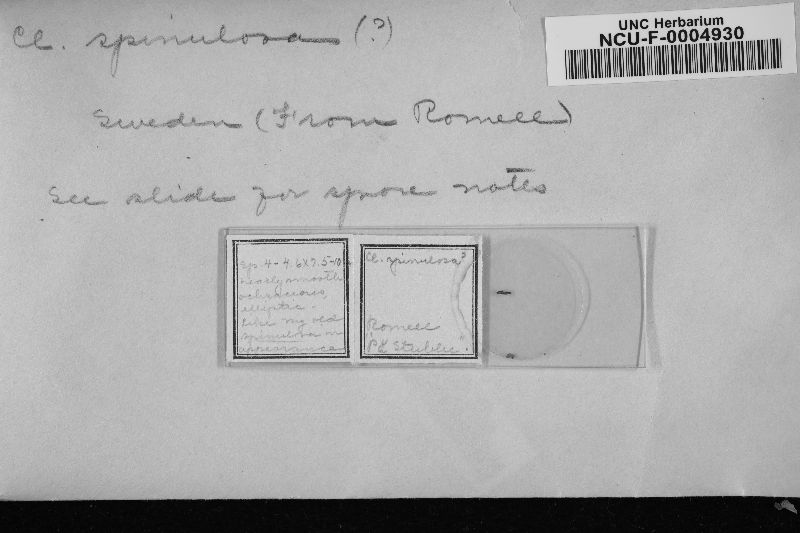 Cl. spinulosa (?)
UNC Herbarium
NCU-F-0004930
Sweden (From Romell)
See slide for spore notes
Sp. 4-4.6x7.5-10
nearly smooth
ochraceous,
elliptic -
Like my old
spinulosa in
appearance
Cl. spinulosa?
Romell